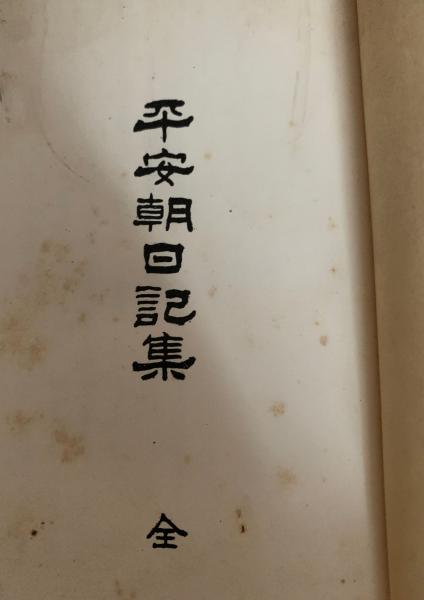 平安朝日記集
全